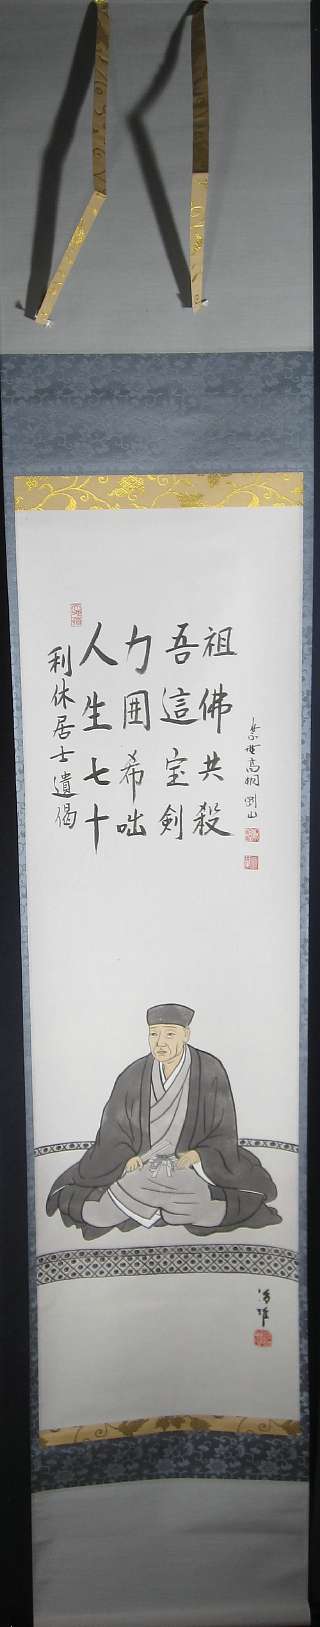 利休居士遺偈
人生七十
力囲希咄
吾這宝剣
祖佛共殺
高桐剛山